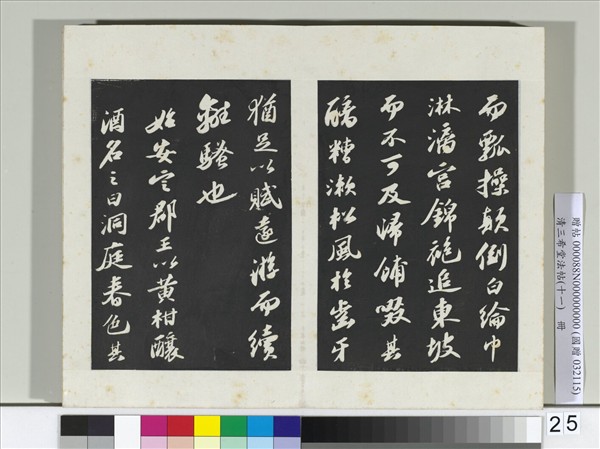 而瓢操顛倒白綸巾
淋漓宮錦袍追東坡
而不可及歸餔歠其
醨糟漱松風於齒牙
猶足以賦遠遊而續
離騷也
始安定郡王以黃柑釀
酒名之曰洞庭春色其
贈帖 000088N000000000 (國贈 032115)
清三希堂法帖(十一) 冊
25